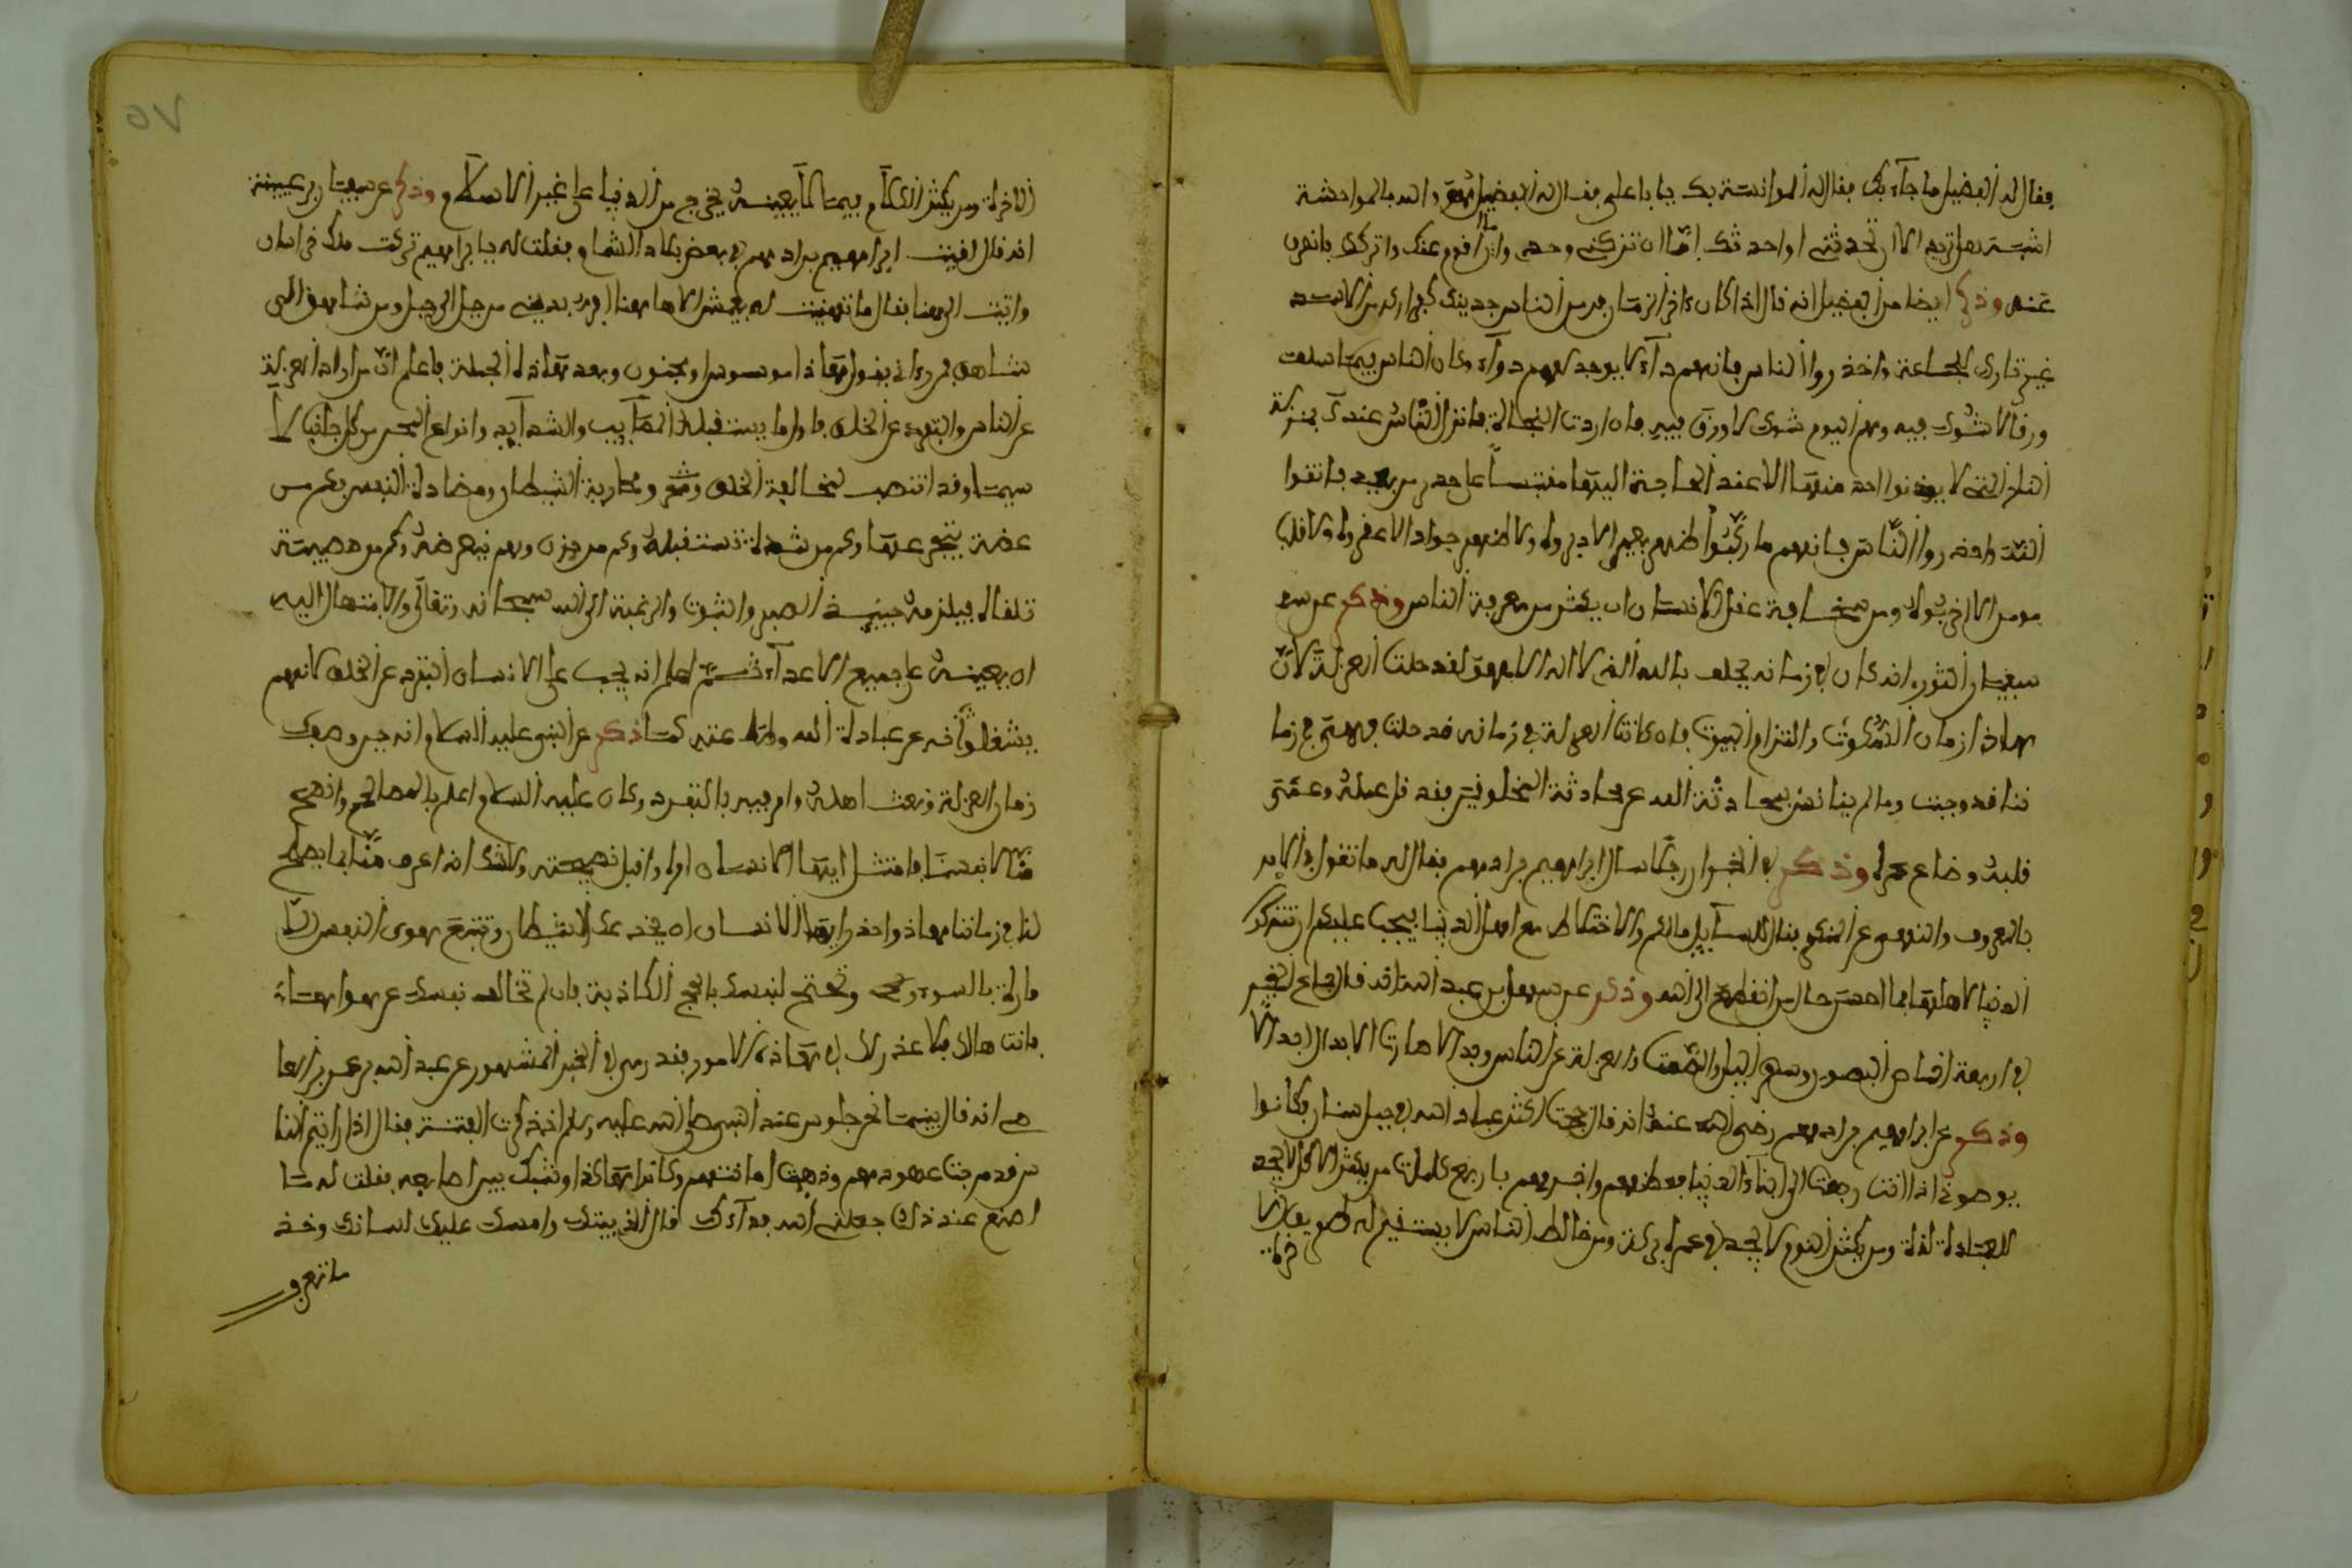 فقال له الفضيل ما جاء بك فقال له الموانسة بك يا با علي فقال له الفضيل هي والله بالمواحشة
اشبه هل تريد الا ان تحدثني او احدثك اما ان تتركني وحدي واما اقوم عنك واتركك بانصرف
عنه وذكر ايضا من الفضيل انه قال اذا كان اخر الزمان فر من الناس جدينك كفرارك من الاسد
غير تارك الجماعة واحذروا الناس فانهم داء لا يوجد لهم دواء وكان الناس فيما سلف
ورقا لا شوك فيه وهم اليوم شوك لا ورق فيه فان اردت النجاة فانزل الناس عندك بمنزلة
النار التي لا يدنوا احد منها الا عند الحاجة اليها مقتبسا على حذر من بعيد باتقوا
الله واحذروا الناس فانهم ما ركبوا ظهر بعير الا دبروه ولا ظهر جواد الا عقروه ولا قلب
مومن الا اخربوه ومن سخافة عقل الانسان ان يكثر من معرفة الناس وذكر عن سـ
سفيان الثوري انه كان في زمانه يحلف بالله الذي لا اله الا هو لقد حلت العزلة لان
هاذا زمان السكوت والتزام البيوت فان كانت العزلة في زمانه قد حلت فهي في زما
ننا قد وجبت ومن لم يتانس بمحادثة الله عن محادثة المخلوقين فقد قل عمله وعمي
قلبه وضاع عمره وذكر في الخبر ان رجلا سال ابراهيم بن ادهم فقال له ما تقول في الامر
بالمعروف والنهي عن المنكر فقال للسايل مالكم والاختلاط مع اهل الدنيا يجب عليكم ان تتركوا
الدنيا لاهلها فما احسن حال من انقطع الى الله وذكر عن سهل بن عبد الله انه قال اجتماع الخير
في اربعة اخماص البطون وسهر الليل والصمت والعزلة عن الناس وبها صارت الابدال ابدالا
وذكر عن ابراهيم بن ادهم رضي الله عنه انه قال صحبت اكثر عباد الله في جبل لبنان فكانوا
يوصوني اذا انت رجعت الى ابناء الدنيا فعظهم واخبرهم باربع كلمات من يكثر الاكل لا يجد
للعبادة لذة ومن يكثر النوم لا يجد في عمره بركة ومن خالط الناس لا يستقيم له طريق
الاخرة ومن يكثر الكلام فيما لا يعنيه يخرج من الدنيا على غير الاسلام وذكر عن سفيان بن عيينة
انه قال لقيت ابراهيم بن ادهم في بعض بلاد الشام فقلت له يا ابراهيم تركت ملك خراسان
واتيت الى هنا فقال ما تهنيت له بعيش الا ها هنا افر بديني من جبل الى جبل ومن شاهق الى
شاهق فمن راني يقول هاذا موسوس او مجنون وبعد هاذه الجملة فاعلم ان من اراد العزلة
عن الناس والتفرد عن الخلق فاول ما يستقبله المصايب والشدايد وانواع المحن من كل جانب لا
سيما وقد انتصب لمخالفة الخلق ومحاربة الشيطان ومضادة النفس فكم من
غصة يتجرعها وكم من شدة تستقبله وكم من حزن وهم يعرضه وكم من مصيبة
تلقاه فيلزمه حينئذ الصبر والثبوت والرغبة الى الله سبحانه وتعالى والابتهال اليه
ان يعينه على جميع الاعداء ثم اعلم انه يجب على الانسان التفرد عن الخلق لانهم
يشغلونه عن عبادة الله وطاعته كما ذكر عن النبي عليه السلام انه حين وصف
زمان العزلة ونعت اهله وامر فيه بالتفرد وكان عليه السلام اعلم بالمصالح وانصح
منا لانفسنا فامتثل ايها الانسان امره واقبل نصيحته ولا شك انه اعرف منا بما يصلح
لنا في زماننا هاذا واحذر ايها الانسان ان يخدعك الشيطان وتتبع هوى النفس الامـ
مارة بالسوء وتحتج لنفسك بالحجج الكاذبة فان لم تخالف نفسك عن هواها
فانت هالك فلا عذر لك في هاذه الامور فقد روي في الخبر المشهور عن عبد الله بن عمر بن العا
صي انه قال بينما نحن جلوس عند النبي صلى الله عليه وسلم اذ ذكرت الفتنة فقال اذا رايتم النا
س قد مرجت عهودهم وذهبت امانتهم وكانوا هاكذا وشبك بين اصابعه فقلت له ما
اصنع عند ذلك جعلني الله فداءك قال الزم بيتك وامسك عليك لسانك وخذ
ما تعرف